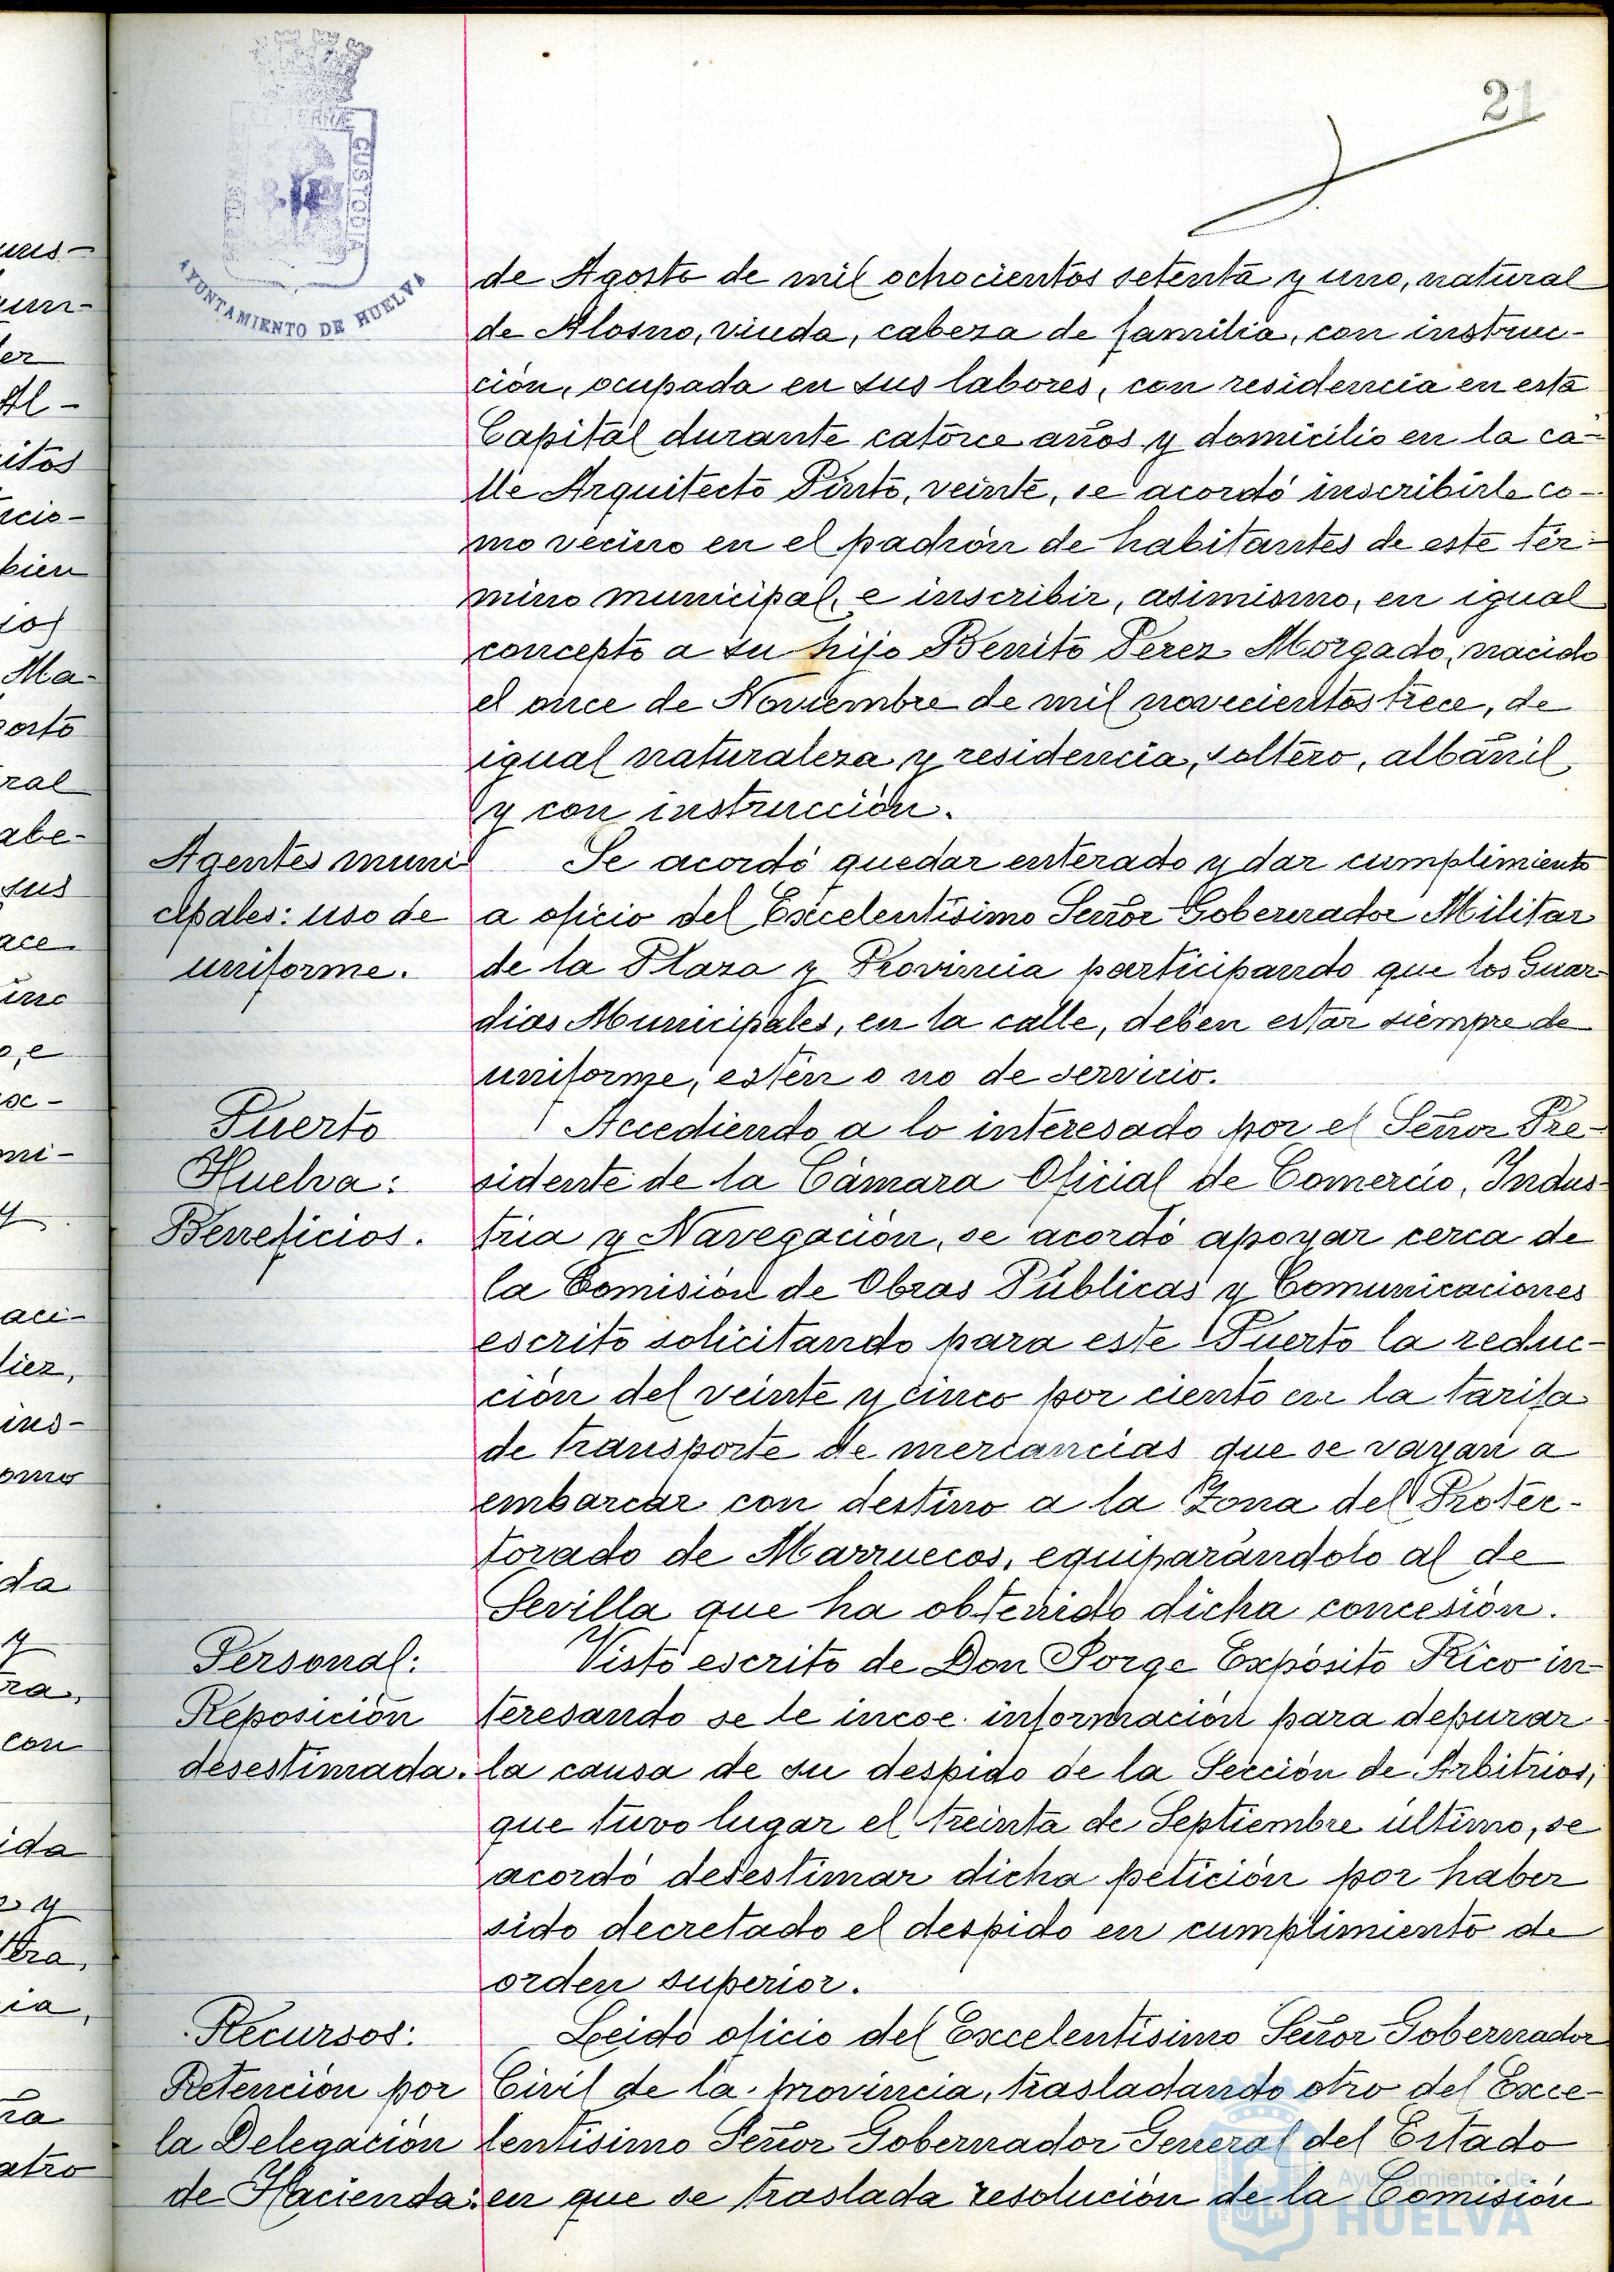 21
AYUNTAMIENTO DE HUELVA
de Agosto de mil ochocientos setenta y uno, natural
de Alosno, viuda, cabeza de familia, con instruc-
ción, ocupada en sus labores, con residencia en esta
Capital durante catorce años y domicilio en la ca-
lle Arquitecto Pinto, veinte, se acordó inscribirle co-
mo vecino en el padrón de habitantes de este tér-
mino municipal, e inscribir, asimismo, en igual
concepto a su hijo Benito Perez Morgado, nacido
el once de Noviembre de mil novecientos trece, de
igual naturaleza y residencia, soltero, albañil,
y con instrucción.
Agentes muni
cipales: uso de
uniforme.
Se acordó quedar enterado y dar cumplimiento
a oficio del Excelentísimo Señor Gobernador Militar
de la Plaza y Provincia participando que los Guar-
dias Municipales, en la calle, deben estar siempre de
uniforme, estén o no de servicio.
Puerto
Huelva:
Beneficios.
Accediendo a lo interesado por el Señor Pre-
sidente de la Cámara Oficial de Comercio, Indus-
tria y Navegación, se acordó apoyar cerca de
la Comisión de Obras Públicas y Comunicaciones
escrito solicitando para este Puerto la reduc-
ción del veinte y cinco por ciento en la tarifa
de transporte de mercancias que se vayan a
embarcar con destino a la Zona del Protec-
torado de Marruecos, equiparándolo al de
Sevilla que ha obtenido dicha concesión.
Personal:
Reposición
desestimada.
Visto escrito de Don Jorge Expósito Rico in-
teresando se le incoe información para depurar
la causa de su despido de la Sección de Arbitrios,
que tuvo lugar el treinta de Septiembre último, se
acordó desestimar dicha petición por haber
sido decretado el despido en cumplimiento de
orden superior.
Recursos:
Retención por
la Delegación
de Hacienda:
Leido oficio del Excelentísimo Señor Gobernador
Civil de la provincia, trasladando otro del Exce-
lentísimo Señor Gobernador General del Estado
en que se traslada resolución de la Comisión
Ayuntamiento de
HUELVA